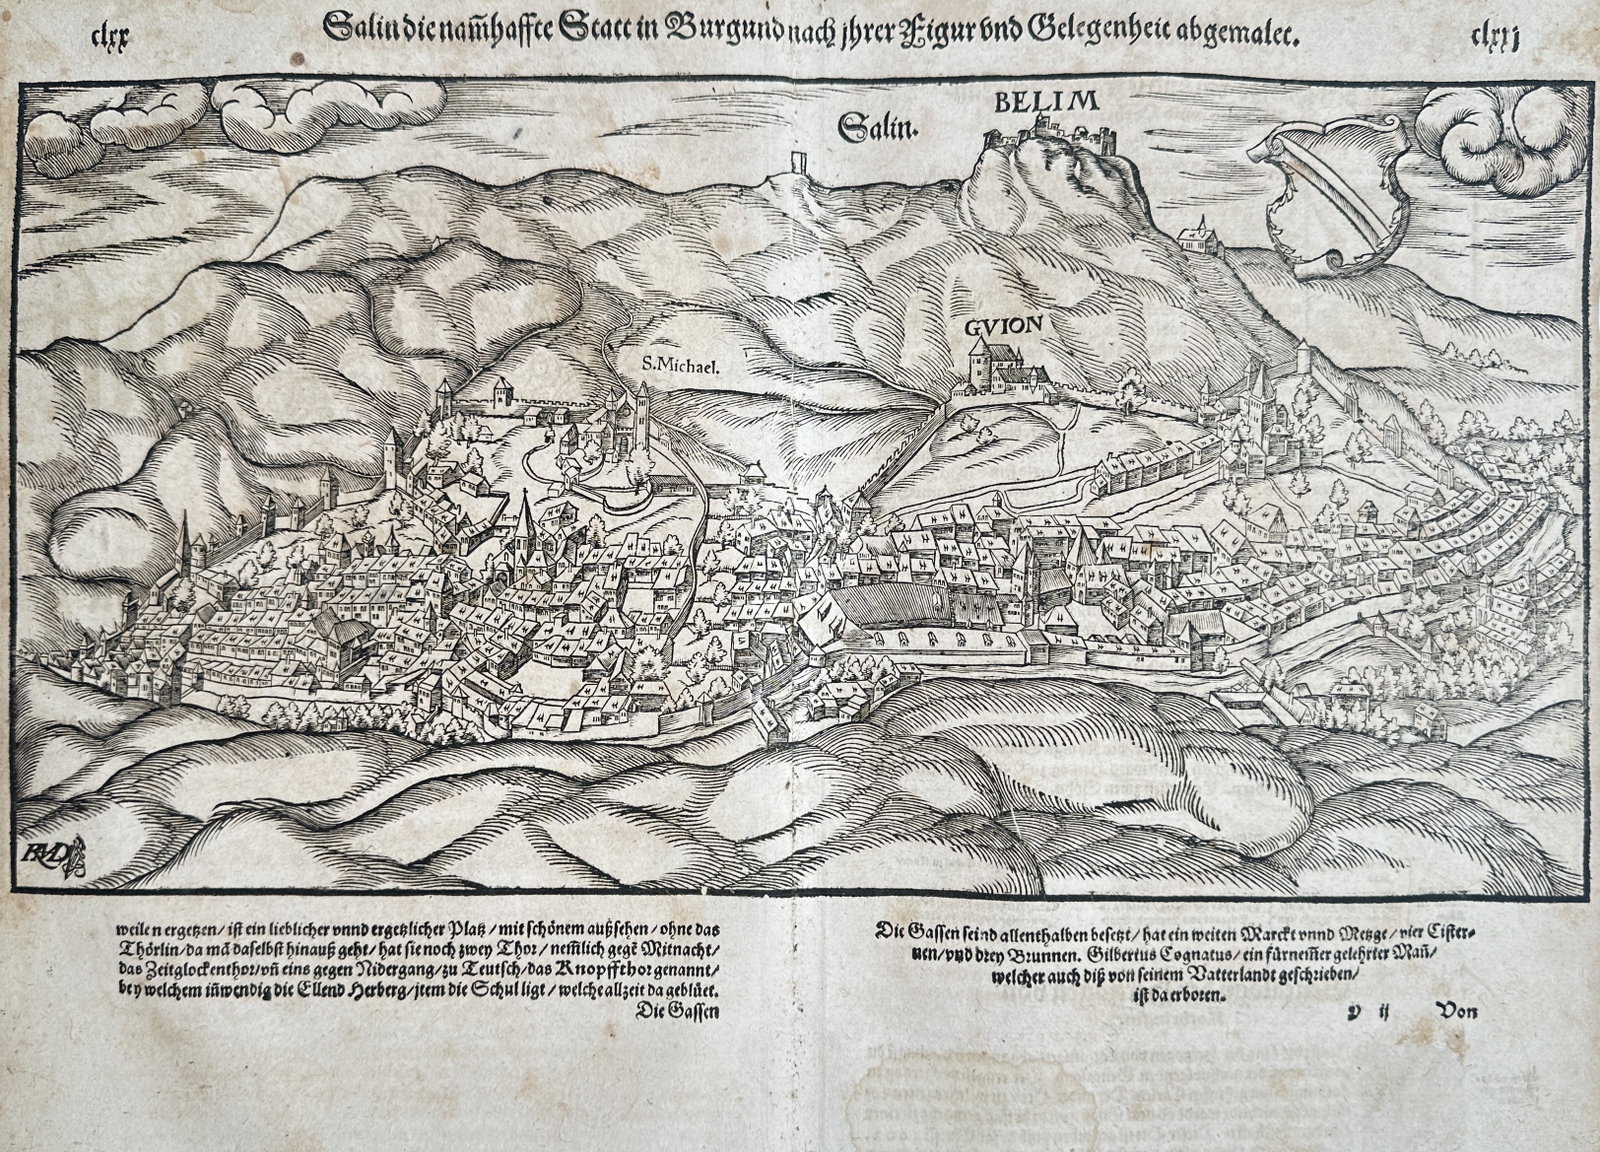 clxx
Salin die nam̃haffte Statt in Burgund nach jhrer Figur vnd Gelegenheit abgemalet.
clxxj
BELIM
Salin.
GVION
S. Michael.
weilen ergetzen / ist ein lieblicher vnnd ergetzlicher Platz / mit schönem außsehen / ohne das
Thörlin / da mã daselbst hinauß geht / hat sie noch zwey Thor / nem̃lich gegẽ Mitnacht /
das Zeitglockenthor / vñ eins gegen Nidergang / zu Teutsch / das Knopffthor genannt /
bey welchem iñwendig die Ellend Herberg / jtem die Schul ligt / welche allzeit da geblüet.
Die Gassen
Die Gassen seind allenthalben besetzt / hat ein weiten Marckt vnnd Metzge / vier Cister-
nen / vnd drey Brunnen. Gilbertus Cognatus / ein fürnem̃er gelehrter Mañ /
welcher auch diß von seinem Vatterlandt geschrieben /
ist da erboren.
v ij
Von